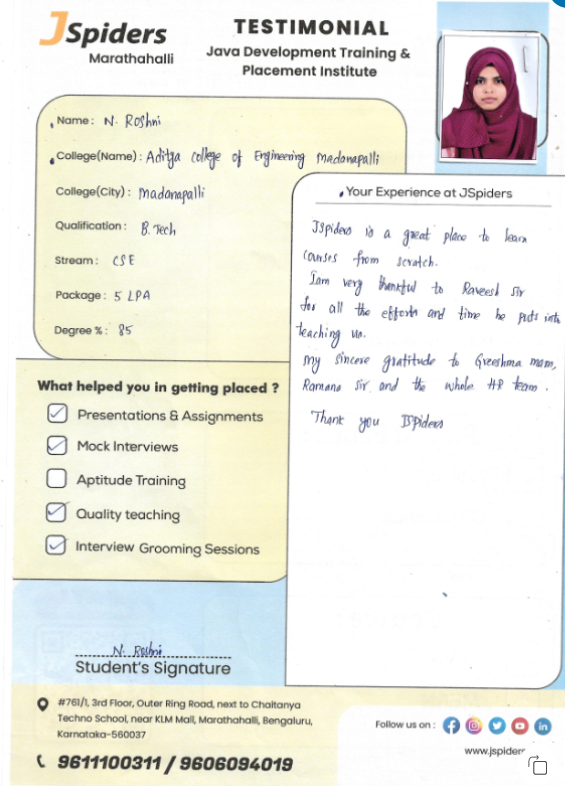 JSpiders
Marathahalli
TESTIMONIAL
Java Development Training &
Placement Institute
Name : N. Roshni
College(Name) : Aditya College of Engineering Madanapalli
College(City) : Madanapalli
Qualification : B.Tech
Stream : CSE
Package : 5 LPA
Degree % : 85
What helped you in getting placed ?
Presentations & Assignments
Mock Interviews
Aptitude Training
Quality teaching
Interview Grooming Sessions
Your Experience at JSpiders
JSpiders is a great place to learn
courses from scratch.
Iam very thankful to Raveesh sir
for all the efforts and time he puts into
teaching us.
my sincere gratitude to Greeshma mam,
Ramana sir and the whole HR team.
Thank you JSpiders
N. Roshni
Student's Signature
#761/1, 3rd Floor, Outer Ring Road, next to Chaitanya
Techno School, near KLM Mall, Marathahalli, Bengaluru,
Karnataka-560037
9611100311 / 9606094019
Follow us on :
www.jspider